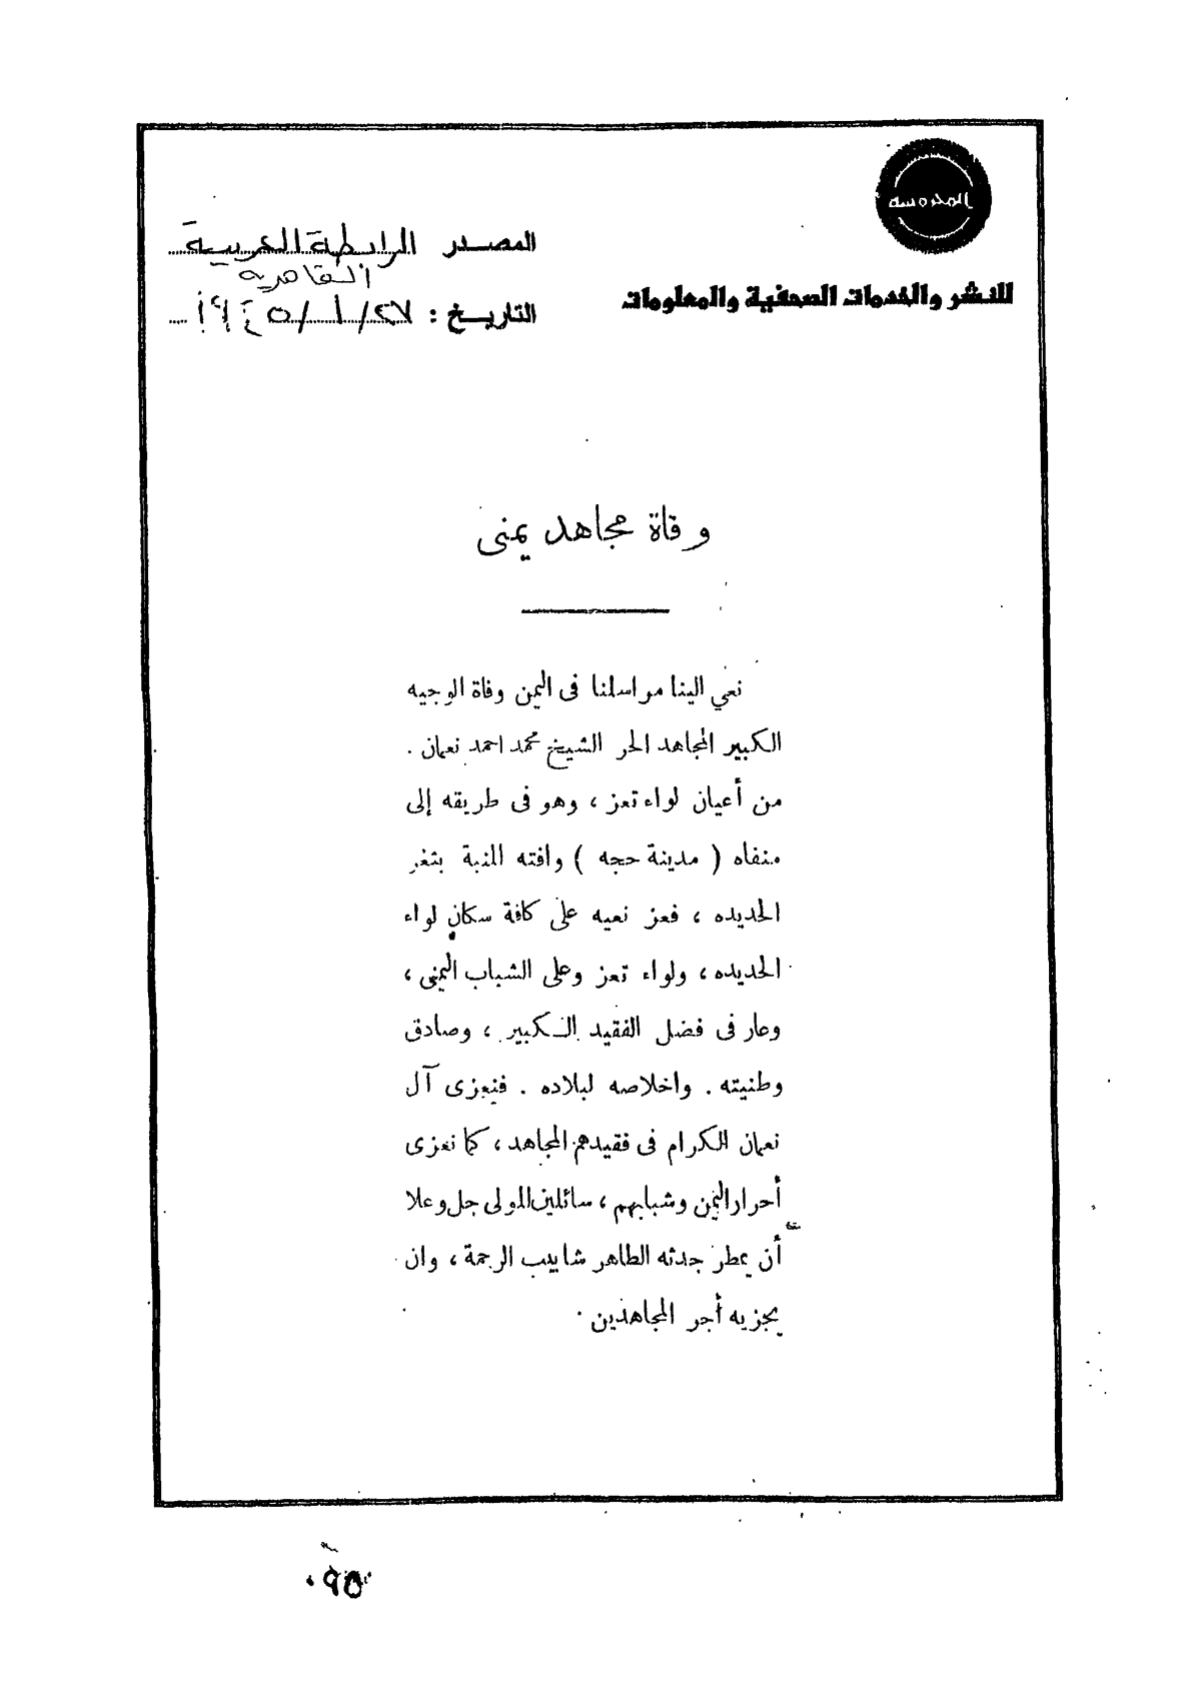 المحروسة
للنشر والخدمات الصحفية والمعلومات
المصدر الرابطة العربية
القاهرية
التاريخ : ٢٧/١/١٩٤٥
وفاة مجاهد يمنى
نعي الينا مراسلنا فى اليمن وفاة الوجيه
الكبير المجاهد الحر الشيخ محمد احمد نعمان .
من أعيان لواء تعز ، وهو فى طريقه إلى
منفاه ( مدينة حجه ) وافته المنية بثغر
الحديده ، فعز نعيه على كافة سكان لواء
الحديده ، ولواء تعز وعلى الشباب اليمنى ،
وعار فى فضل الفقيد الكبير ، وصادق
وطنيته . واخلاصه لبلاده . فنعزى آل
نعمان الكرام فى فقيدهم المجاهد ، كما نعزى
أحرار اليمن وشبابهم ، سائلين المولى جل وعلا
أن يمطر جدثه الطاهر شابيب الرحمة ، وان
يجزيه أجر المجاهدين .
٠٩٥